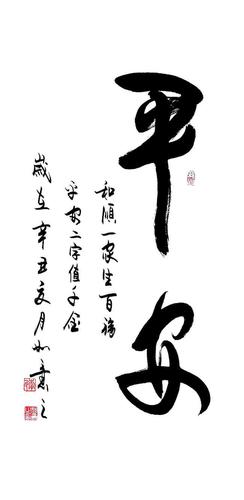 平安
和顺一家生百福
平安二字值千金
岁在辛丑夏月如意之